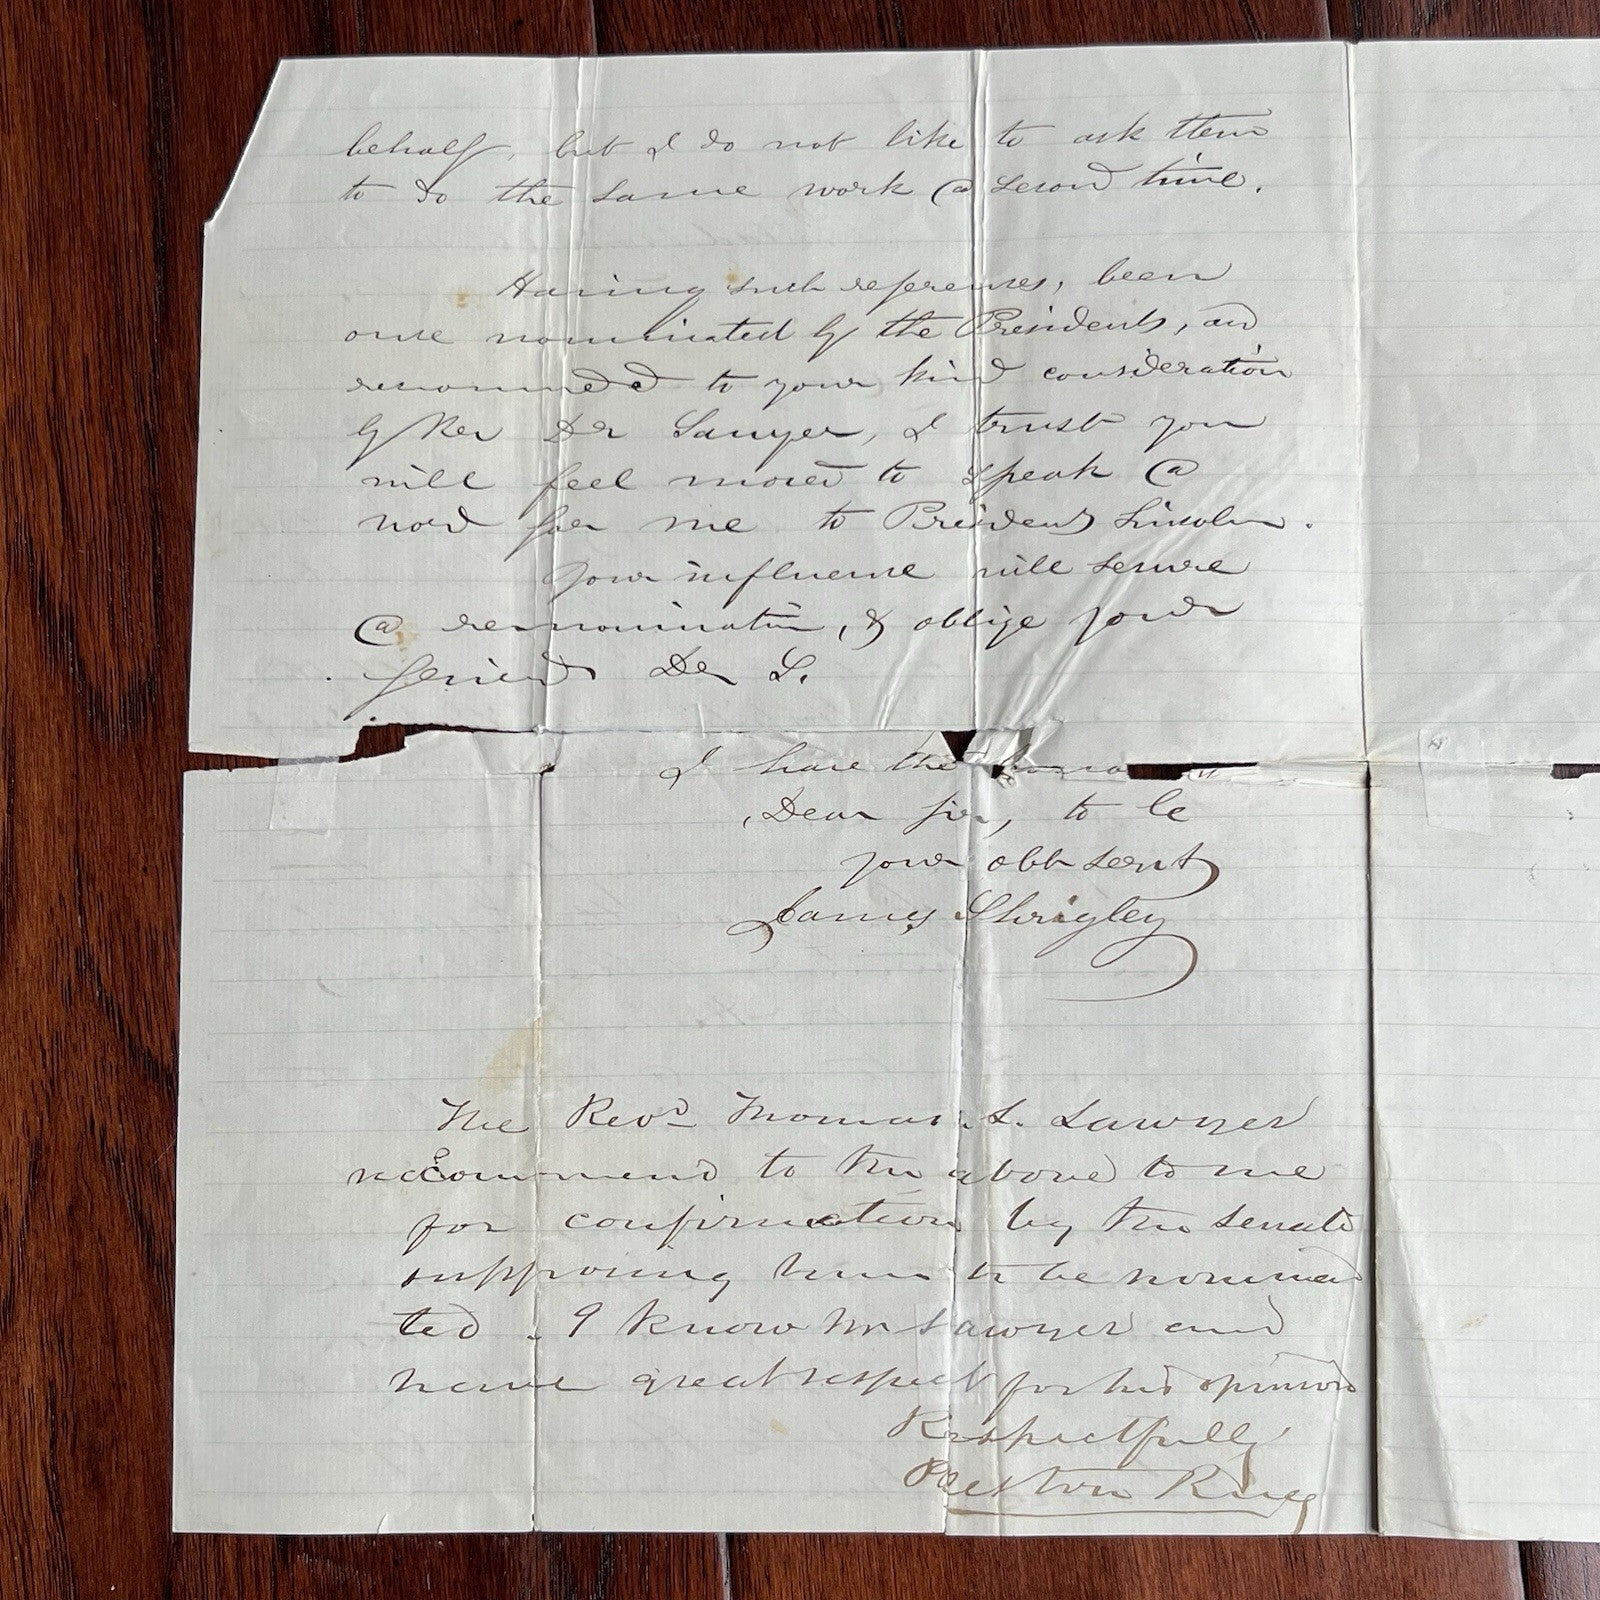 behalf, but I do not like to ask them
to do the same work @ second time.
Having such references, been
once nominated by the Presidents, and
recommended to your kind consideration
by Rev Dr Sawyer, I trust you
will feel moved to speak @
word for me to President Lincoln.
Your influence will secure
@ renomination, & oblige your
friend Dr S.
I have the
Dear Sir, to be
your obt servt
James Shrigley
The Revd Thomas . S. Sawyer
reccommend to the above to me
for confirmation by the Senate
supposing him to be nomina
ted . I know Mr Sawyer and
have great respect for his opinions
Respectfully
Preston King